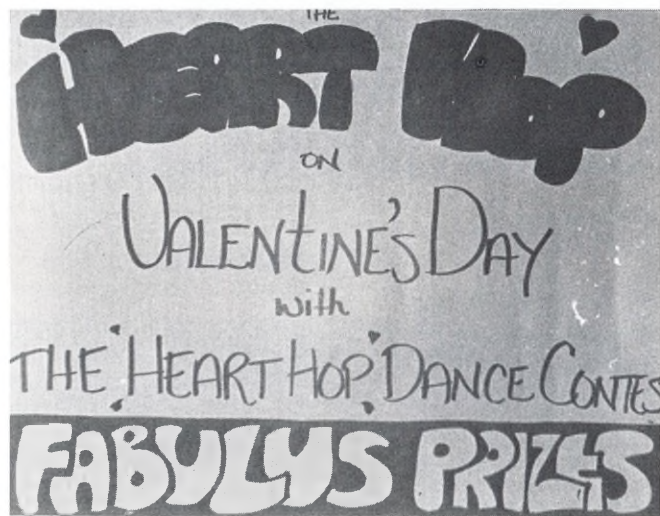 THE
HEART HOP
ON
VALENTINE'S DAY
with
THE HEART HOP DANCE CONTES
FABULUS PRIZES